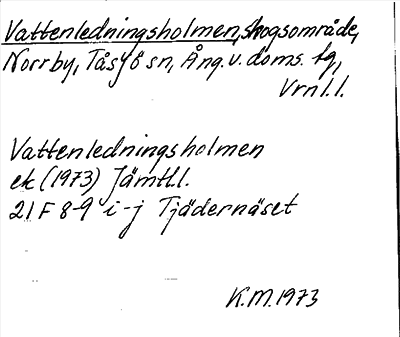 Vattenledningsholmen, skogsområde,
Norrby, Tåsjö sn, Ång. v. doms. fg,
Vrnl.l.
Vattenledningsholmen
ek (1973) Jämtl.l.
21 F 8-9 i-j Tjädernäset
K.M. 1973